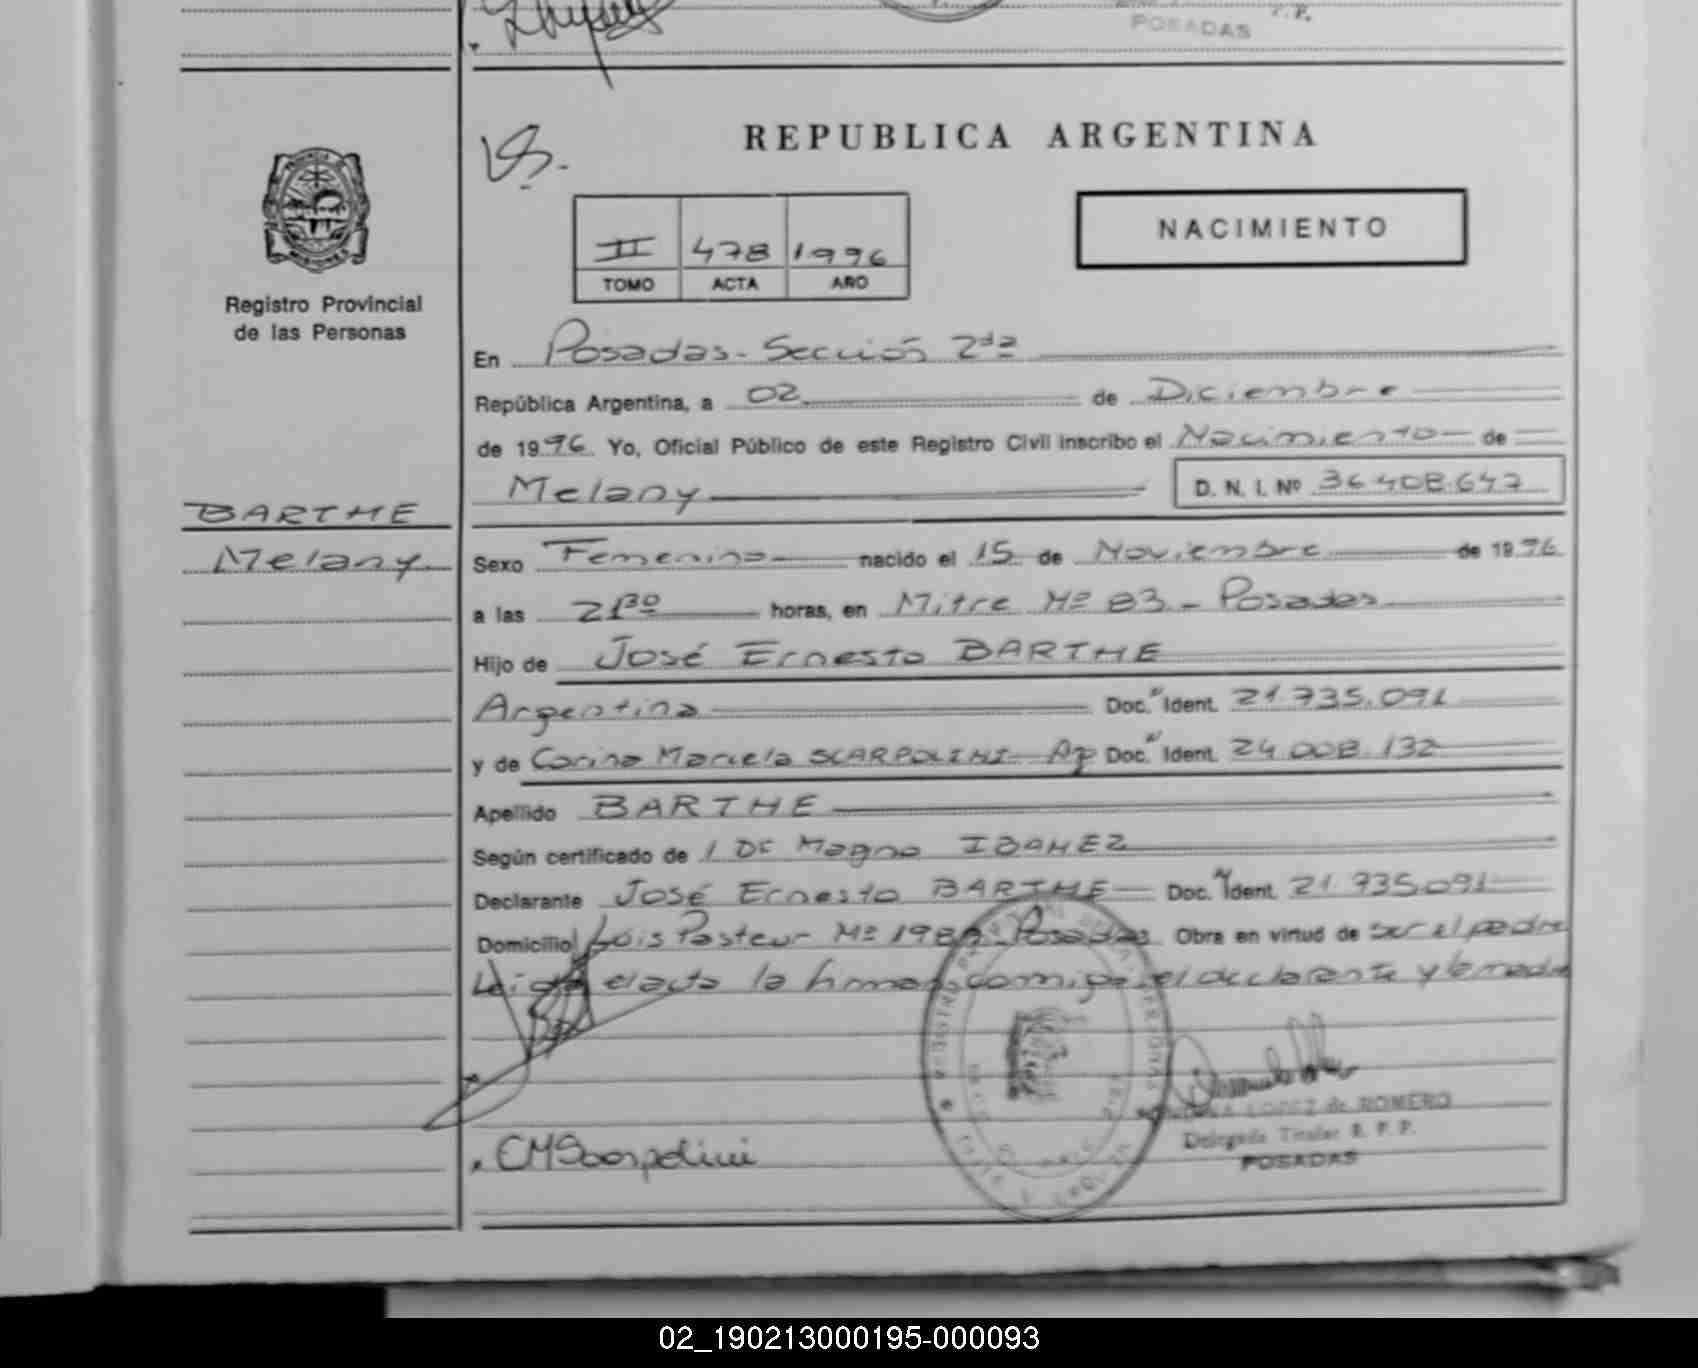 POSADAS
REPUBLICA ARGENTINA
NACIMIENTO
II 478 1996
TOMO ACTA AÑO
Registro Provincial
de las Personas
En Posadas - Sección 2da
República Argentina, a 02 de Diciembre
de 1996 Yo, Oficial Público de este Registro Civil inscribo el Nacimiento de
Melany D. N. I. Nº 36.408.647
BARTHE
Melany
Sexo Femenino nacido el 15 de Noviembre de 1996
a las 21 30 horas, en Mitre Nº 83 - Posadas
Hijo de José Ernesto BARTHE
Argentina Doc. Ident. 21.735.091
y de Corina Mariela SCARPOLINI Doc. Ident. 24.008.132
Apellido BARTHE
Según certificado de Dr Magno IBAÑEZ
Declarante José Ernesto BARTHE Doc. Ident. 21.735.091
Domicilio Luis Pasteur Nº Posadas Obra en virtud de ser el padre
Leida el acta la firman conmigo el declarante y la madre
LOPEZ de ROMERO
Delegada Titular R. P. P.
POSADAS
CMScarpolini
02_190213000195-000093